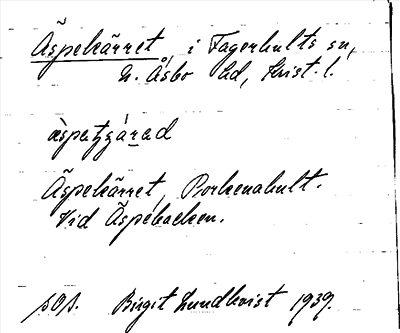 Äspekärret, i Fagerhults sn,
N. Åsbo hd, Krist. l.
Äspekärret, Borkenahult.
Vid Äspebacken.
sOs. Birgit Lundkvist 1939.